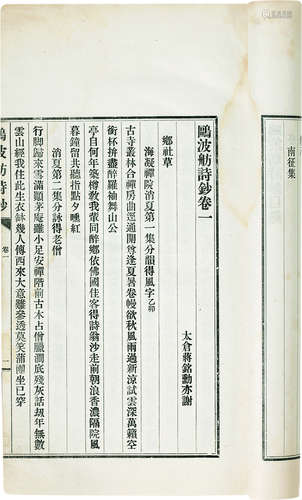 南征集
鷗波舫詩鈔卷一
太倉蔣銘勳亦謝
鄉社草
海凝禪院消夏第一集分韻得風字乙卯
古寺叢林合禪房曲逕通開尊逢夏暑卷幔欲秋風雨過新涼試雲深萬籟空
銜杯拚盡醉羅袖舞山公
亭自何年築樽教我輩同醉鄉依佛國住客得詩翁沙走前朝浪香濃隔院風
暮鐘留共聽指點夕曛紅
消夏第二集分詠得老僧
行腳歸來雪滿頭茅庵雖小足安禪階前古木占僧臘澗底殘灰話劫年無數
雲山經我住此生衣缽幾人傳西來大意難參透莫笑蒲團坐已穿
鷗波舫詩鈔
卷一
一